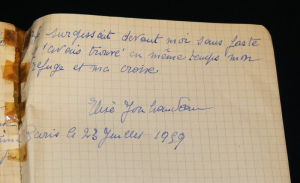 surgissait devant moi sans faste
j'avais trouvé en même temps mon
refuge et ma croix
Paris le 23 Juillet 1939